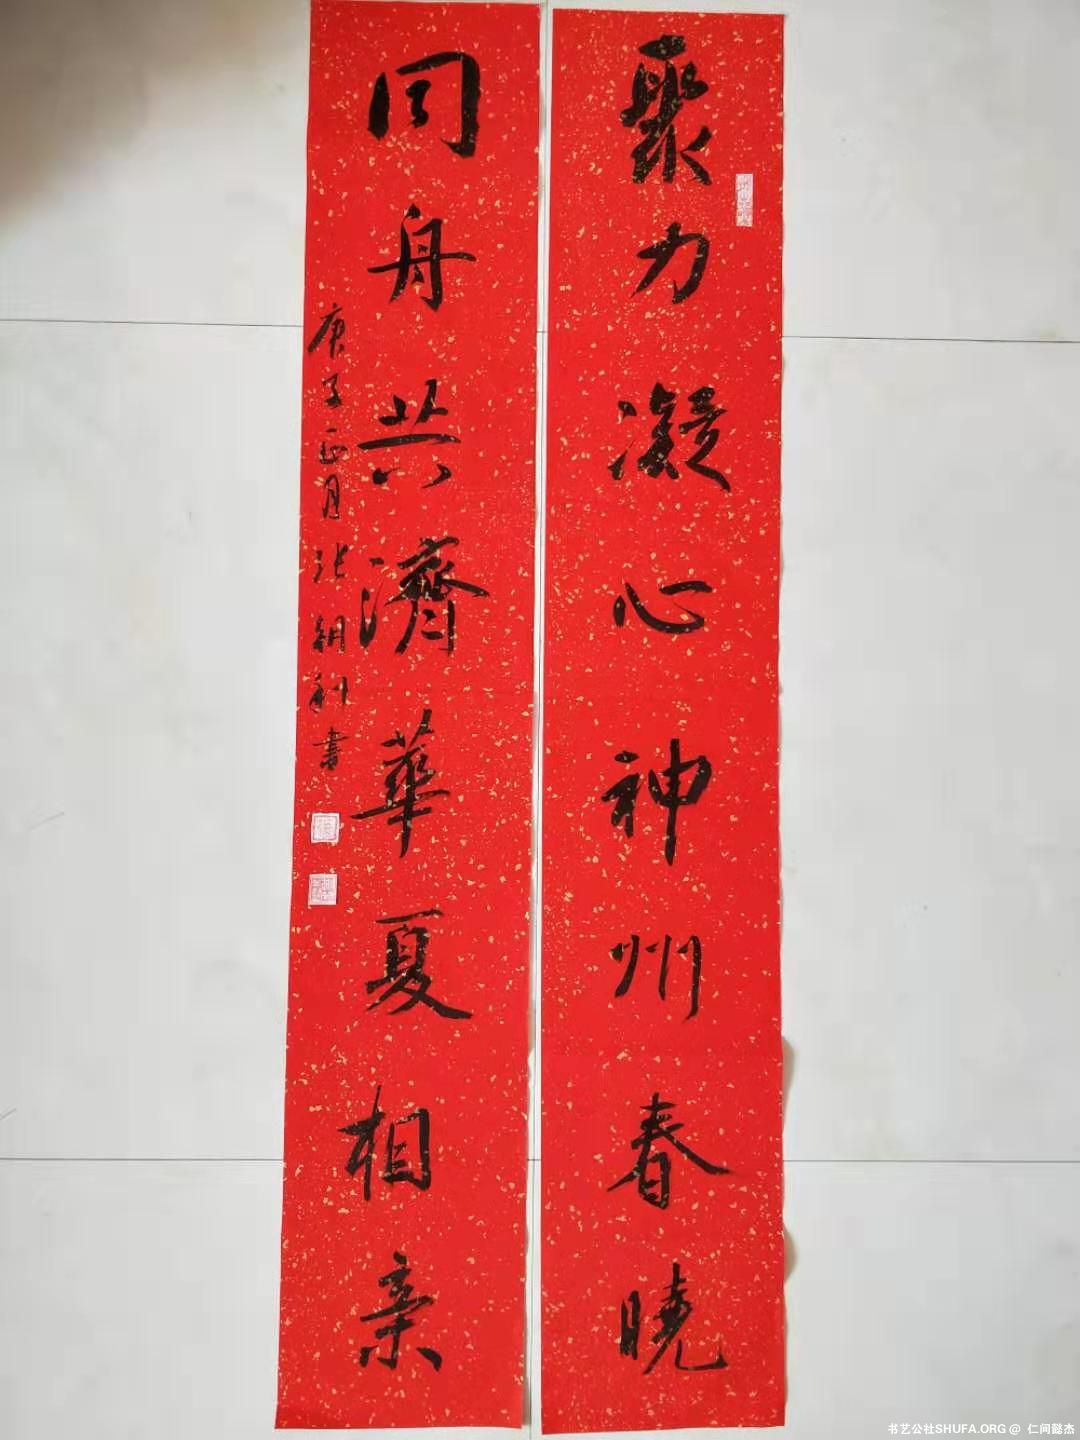 聚力凝心神州春曉
同舟共濟華夏相亲
庚子正月张朝利書
书艺公社SHUFA.ORG@ 仁间懿杰